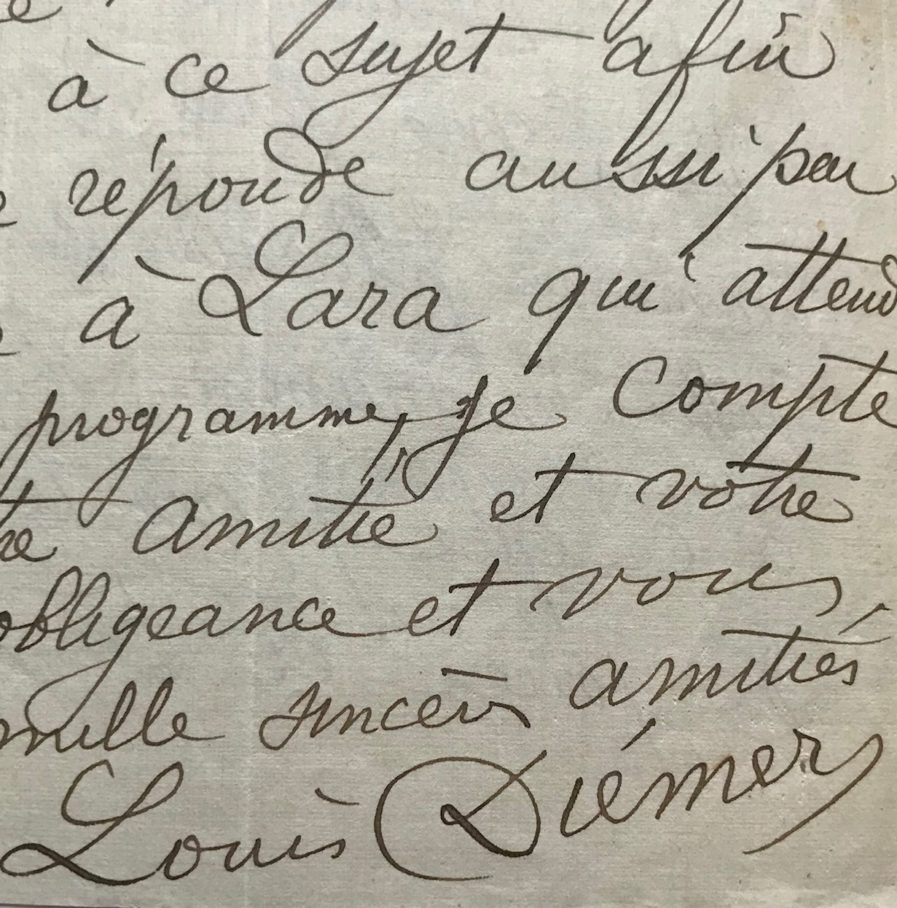 à ce sujet afin
réponde aussi peu
à Lara qui attend
programme, je compte
amitié et votre
obligeance et vous
mille sincères amitiés
Louis Diémer